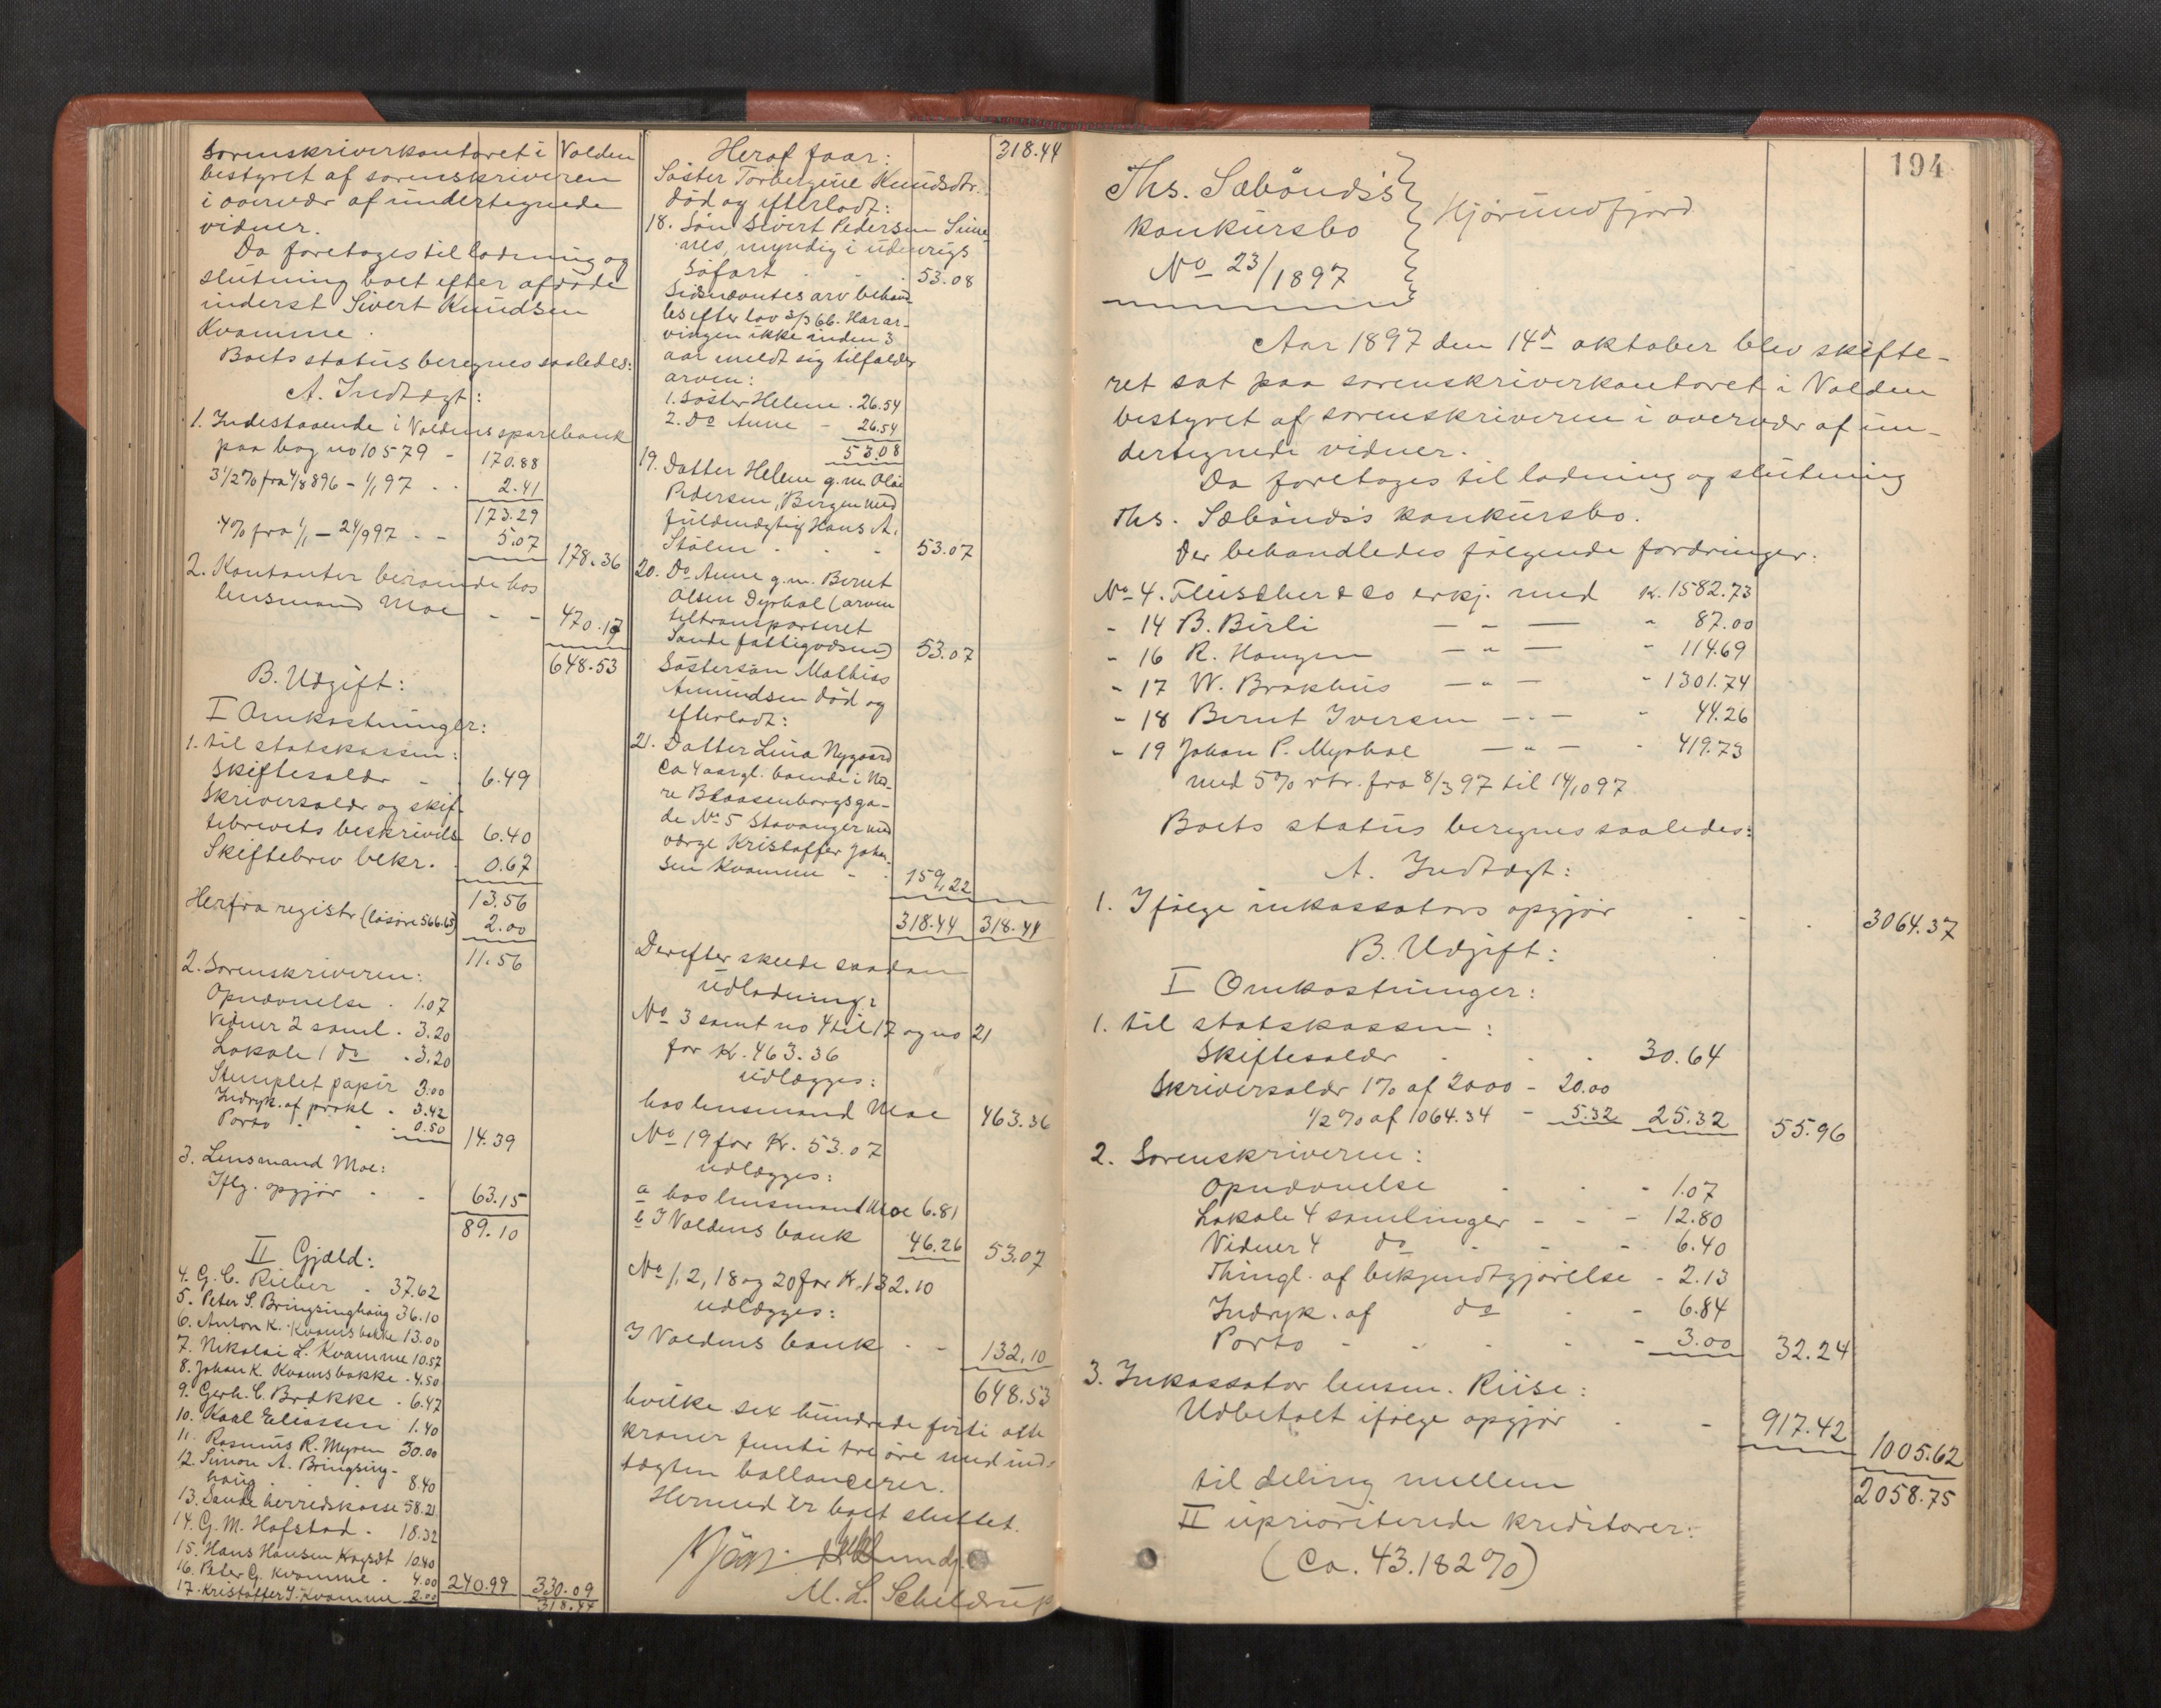 Sorenskriverkontoret i Volden
bestyret af sorenskriveren
i overvær af undertegnede
vidner.
Da foretoges til lodning og
slutning boet efter afdøde
inderst Sivert Knudsen
Kvamme.
Boets status beregnes saaledes:
A. Indtægt:
1. Indestaaende i Voldens sparebank
paa bog no 10579 - 170.88
3 1/2 % fra 4/8 896 - 1/1 97 . . 2.41
173.29
4% fra 1/1 - 24/9 97 . - 5.07 178.36
2. Kontanter beroende hos
lensmand Moe - - 470.17
648.53
B. Udgift:
I Omkostninger:
1. til statskassen:
Skiftesaldr - . 6.49
Skriversaldr og skif-
tebrevets beskrivels 6.40
Skiftebrev bekr. . 0.67
13.56
Herfra registr (løsøre 566.63) 2.00
11.56
2. Sorenskriveren:
Opnævnelse . 1.07
Vidner 2 saml . 3.20
Lokale 1 do . 3.20
Stemplet papir 3.00
Indryk. af prokl . 3.42
Porto . . . 0.50 14.39
3. Lensmand Moe:
Iflg. opgjør - - 63.15
89.10
II Gjæld:
4. G. C. Rieber . 37.62
5. Peter S. Bringsinghaug 36.10
6. Anton K. Kvamsbakke 13.00
7. Nikolai L. Kvamme 10.57
8. Johan K. Kvamsbakke . 4.50
9. Gerh. C. Brække . 6.47
10. Karl Eliassen 1.40
11. Rasmus R. Myren 30.00
12. Simon A. Bringsing-
haug . 8.40
13. Sande herredskasse 58.21
14. G. M. Hofstad . 18.32
15. Hans Hansen Kragsæt 10.40
16. Peter G. Kvamme . 4.00
17. Kristoffer J. Kvamme 2.00 240.99 330.09
318.44
Heraf faar: 318.44
Søster Torbergine Knudsdtr.
død og efterladt:
18. Søn Sivert Pedersen Sime-
nes, myndig i udenrigs
søfart . . . 53.08
Sidsnævntes arv behand-
les efter lov 3/3 66. Har ar-
vingen ikke inden 3
aar meldt sig tilfalder
arven:
1. søster Helene . 26.54
2. do Anne - 26.54
53.08
19. Datter Helene g. m. Ole
Pedersen, Bergen med
fuldmægtig Hans A.
Stølen . . - 53.07
20. Do Anne g. m. Bernt
Olsen Dyrhol (arven
tiltransporteret
Sande fattigvæsen) 53.07
Søstersøn Mathias
Amundsen død og
efterladt:
21. Datter Lina Nygaard
ca 4 aar gl. boende i Ned-
re Blaasenborgsga-
de No 5 Stavanger med
værge Kristoffer Johan-
sen Kvamme - . 159,22
318.44 318.44
Derefter skeede saadan
udlodning:
No 3 samt no 4 til 17 og no 21
for K. 463.36
udlægges:
hos lensmand Moe 463.36
No 19 for Kr. 53.07
udlægges:
a hos lensmand Moe 6.81
b I Voldens bank 46.26 53.07
No 1, 2, 18 og 20 for Kr. 132.10
udlægges:
I Voldens bank . - 132,10
648.53
hvilke sex hundrede førti otte
kroner femti tre øre med ind-
tægten ballancerer.
Hermed er boet sluttet.
M. L. Scheldrup
194
Ths. Sæbønds's
konkursbo Hjørundfjord
No 23/1897
Aar 1897 den 14d oktober blev skifte-
ret sat paa sorenskriverkontoret i Volden
bestyret af sorenskriveren i overvær af un-
dertegnede vidner.
Da foretoges til lodning og slutning
Ths. Sæbønds's konkursbo.
Der behandledes følgende fordringer:
No 4. Fleischer & Co erkj. med K. 1582.73
- 14 B. Birli — " — " 87.00
- 16 R. Haugen — " — " 114.69
- 17 W. Brakhus — " — " 1301.74
- 18 Bernt Iversen — " — " 44.26
- 19 Johan P. Myrhol — " — " 419.73
med 5% rtr. fra 8/3 97 til 14/10 97
Boets status beregnes saaledes:
A. Indtægt:
1. Ifølge inkassators opgjør . - . 3064.37
B. Udgift:
I Omkostninger:
1. til statskassen:
Skiftesaldr . . . 30.64
Skriversaldr 1% af 2000 - 20.00
1/2 % af 1064.34 - 5.32 25.32 55.96
2. Sorenskriveren:
Opnævnelse . . - 1.07
Lokale 4 samlinger - - - 12.80
Vidner 4 do . - - 6.40
Thingl. af bekjendtgjørelse - 2.13
Indryk. af do . - 6.84
Porto - . . . - 3.00 32.24
3. Inkassator lensm. Riise:
Udbetalt ifølge opgjør . - 917.42 1005.62
til deling mellem 2058.75
II uprioriterede kreditorer:
(ca. 43.182%)